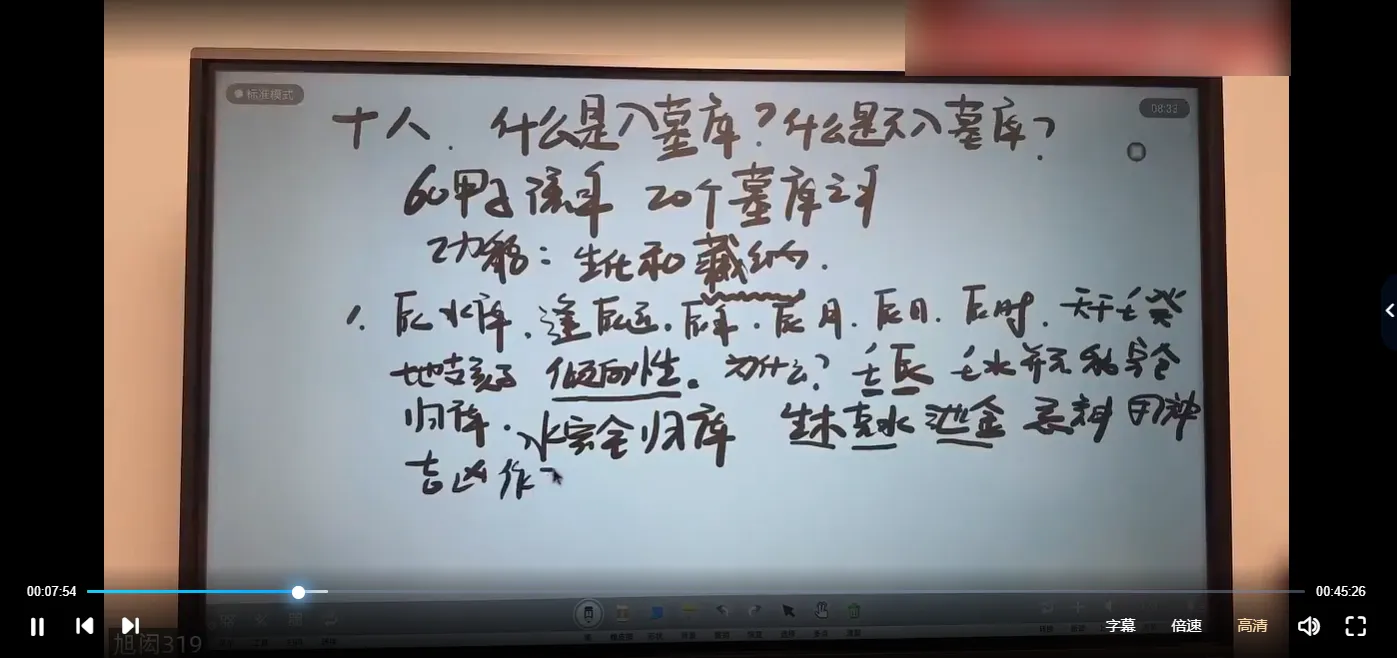 标准模式
08:33
十八. 什么是入墓库?什么是不入墓库?
60甲子 20个墓库之年
功能:生化和藏纳.
1. 辰水库.逢辰运.辰年.辰月.辰日.辰时.天干壬癸
地支亥子 倾向性。为什么?壬辰 壬水并不能完全
归库. 水完全归库 生木克水泄金 忌神用神
吉凶作
00:07:54
00:45:26
字幕
倍速
高清
旭闳319